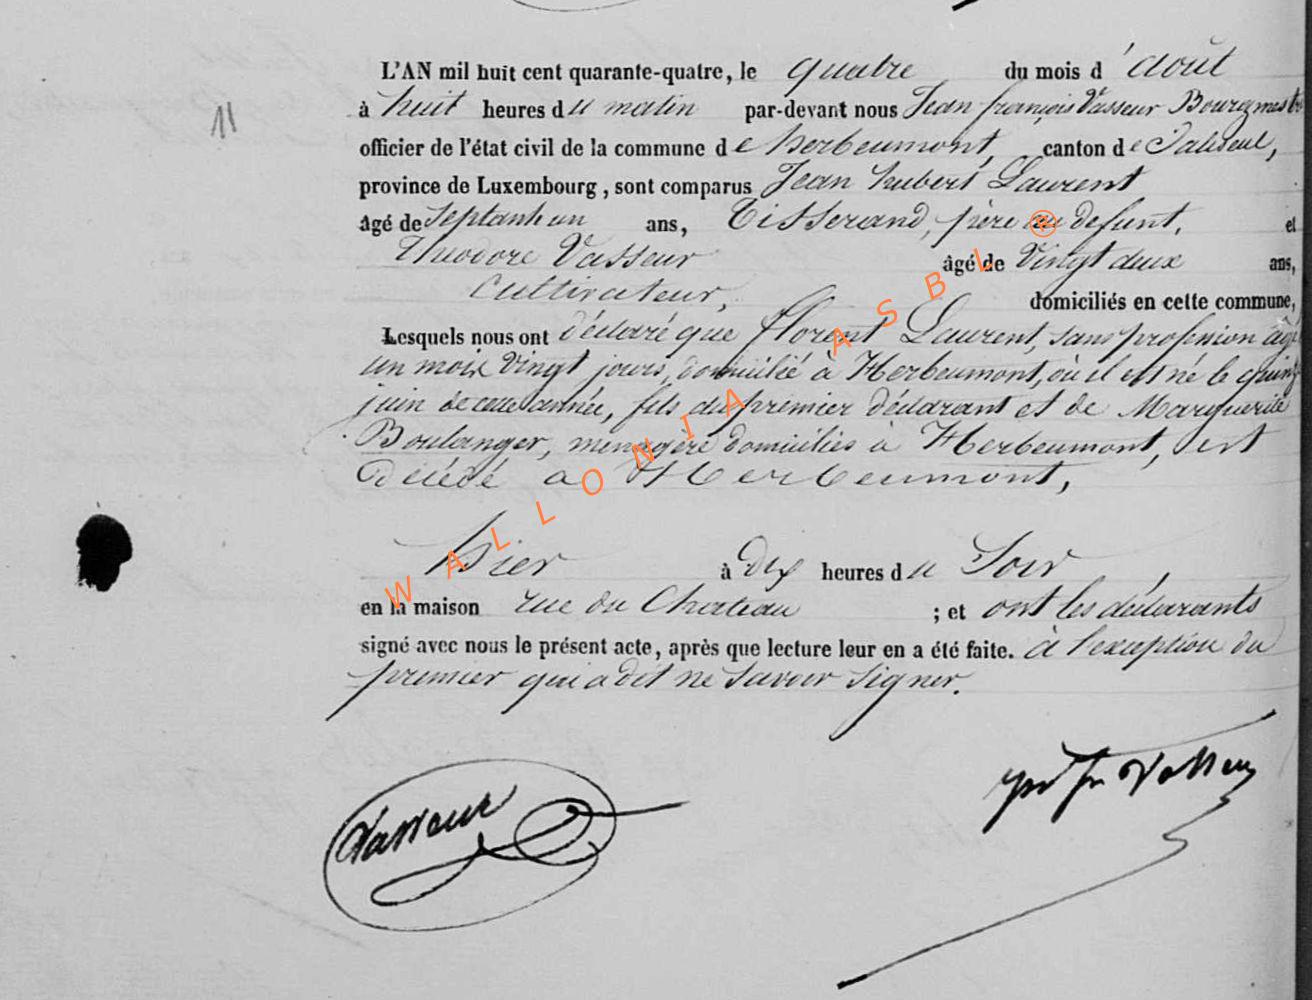 L'AN mil huit cent quarante-quatre, le quatre du mois d'août
11
à huit heures du matin par-devant nous Jean françois Vasseur Bourgmestre
officier de l'état civil de la commune de herbeumont, canton de Paliseul,
province de Luxembourg, sont comparus Jean hubert Laurent
âgé de ans, Tisserand, père du defunt, et
Théodore Vasseur âgé de Vingt deux ans,
Cultivateur, domiciliés en cette commune,
Lesquels nous ont déclaré que florent Laurent, sans profession agé
un mois Vingt jours, domicilié à Herbeumont, où il est né le quinze
juin de cette année, fils du premier déclarant et de Marguerite
Boulanger, menagère domiciliés à Herbeumont, est
décédé a Herbeumont,
hier à Dix heures du Soir
en la maison rue du Chateau ; et ont les déclarants
signé avec nous le présent acte, après que lecture leur en a été faite. à l'exception du
premier qui a dit ne savoir signer.
Vasseur
Vasseur
WALLONIA ASBL ®